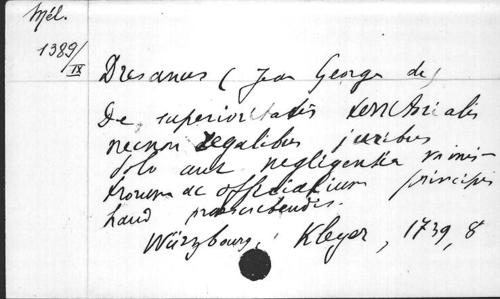 Mél.
1389/
IX
Dresanus (Jean George de)
De superioritatis territorialis
necnon regalibus juribus
dolo aut negligentia minis-
trorum ac officialium principis
haud praescribendis.
Würzbourg, Kleyer, 1739, 8